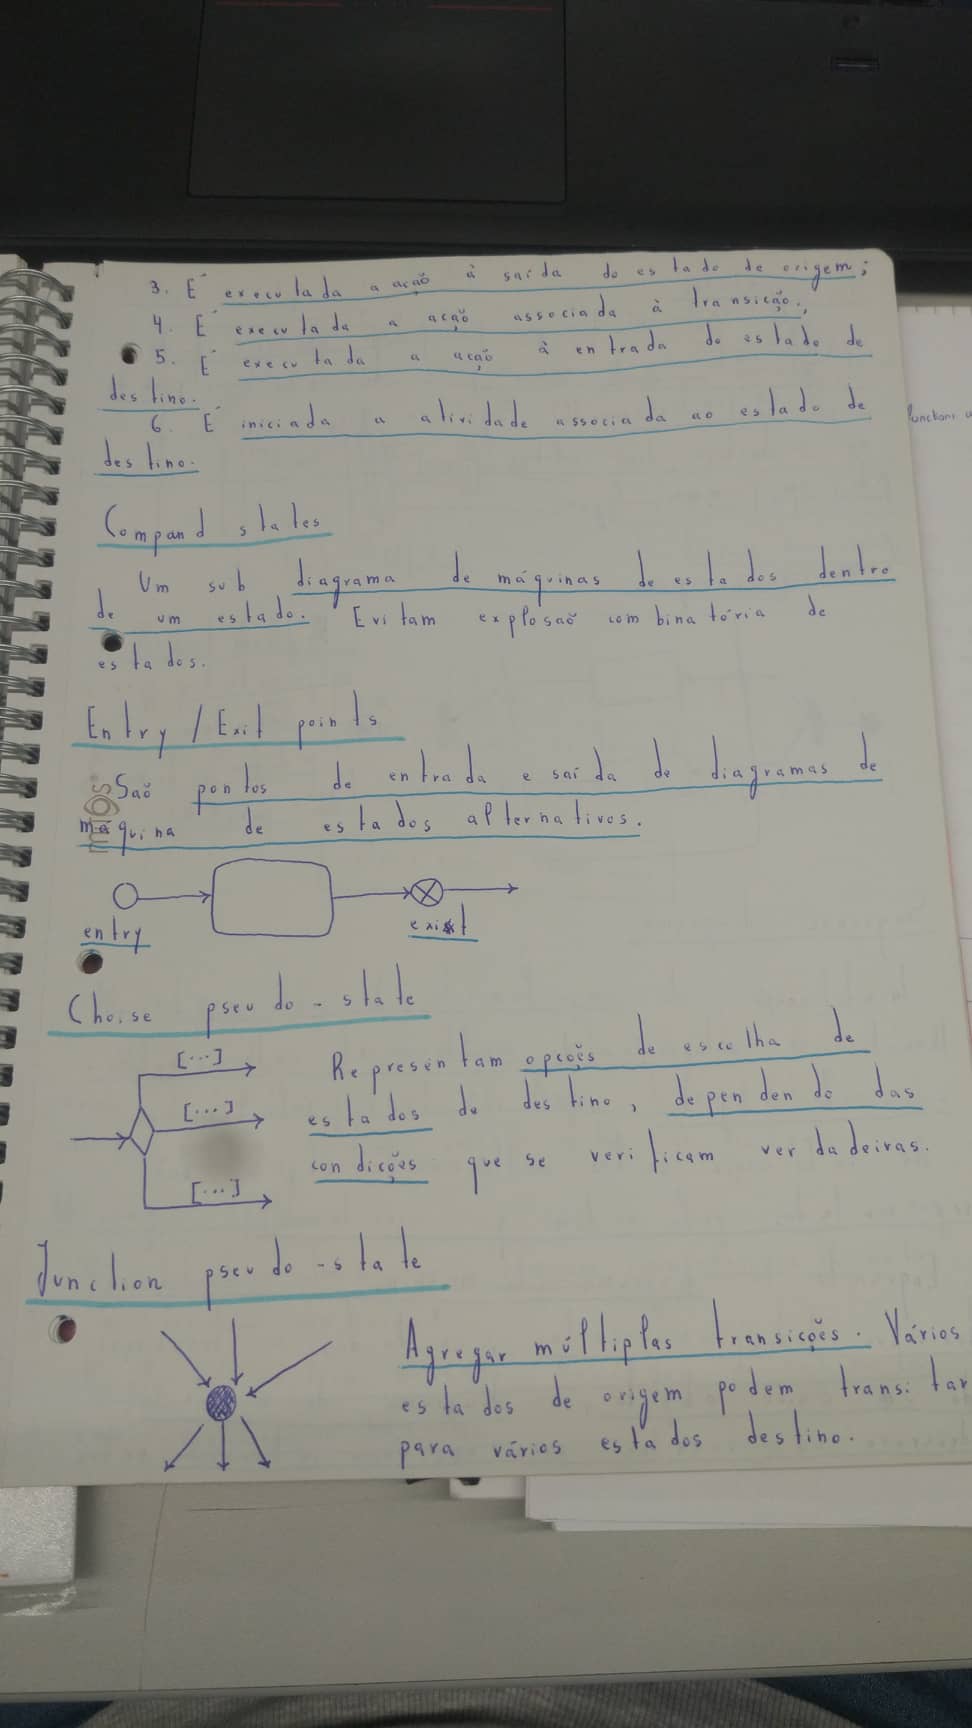 3. É executada a ação à saída do estado de origem;
4. É executada a ação associada à transição;
5. É executada a ação à entrada do estado de
destino.
6. É iniciada a atividade associada ao estado de
destino.
Compand states
Um sub diagrama de máquinas de estados dentro
de um estado. Evitam explosão combinatória de
estados.
Entry / Exit points
São pontos de entrada e saída de diagramas de
máquina de estados alternativos.
entry
exit
Choise pseudo-state
[...]
[...]
[...]
Representam opções de escolha de
estados de destino, dependendo das
condições que se verificam verdadeiras.
Junction pseudo-state
Agregar múltiplas transições. Vários
estados de origem podem transitar
para vários estados destino.